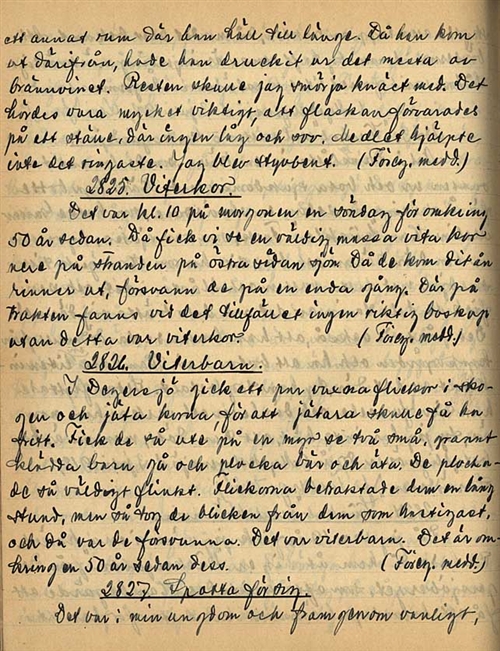 ett annat rum där han höll till länge. Då han kom
ut därifrån, hade han druckit ur det mesta av
brännvinet. Resten skulle jag smörja knäet med. Det
hördes vara mycket viktigt att flaskan förvarades
på ett ställe, där ingen låg och sov. Medlet hjälpte
inte det ringaste. Jag blev styvbent. (Föreg. medd.)
2825. Viterkor.
Det var kl. 10 på morgonen en söndag för omkring
50 år sedan. Då fick vi se en väldig massa vita kor
nere på stranden på östra sidan sjön. Då de kom dit ån
rinner ut, försvann de på en enda gång. Där på
trakten fanns vid det tillfället ingen riktig boskap
utan detta var viterkor. (Föreg. medd.)
2826. Viterbarn.
I sjö gick ett par vuxna flickor i sko-
gen och jäta korna, för att jätara skulle få ha
fritt. Fick de så ute på en myr se två små, grannt
klädda barn gå och plocka bär och äta. De plocka-
de så väldigt flinkt. Flickorna betraktade dem en lång
stund, men så tog de blicken från dem som hastigast,
och då var de försvunna. Det var viterbarn. Det är om-
kring en 50 år sedan dess. (Föreg. medd.)
2827. Spotta för sig.
Det var i min ungdom och framgenom vanligt,